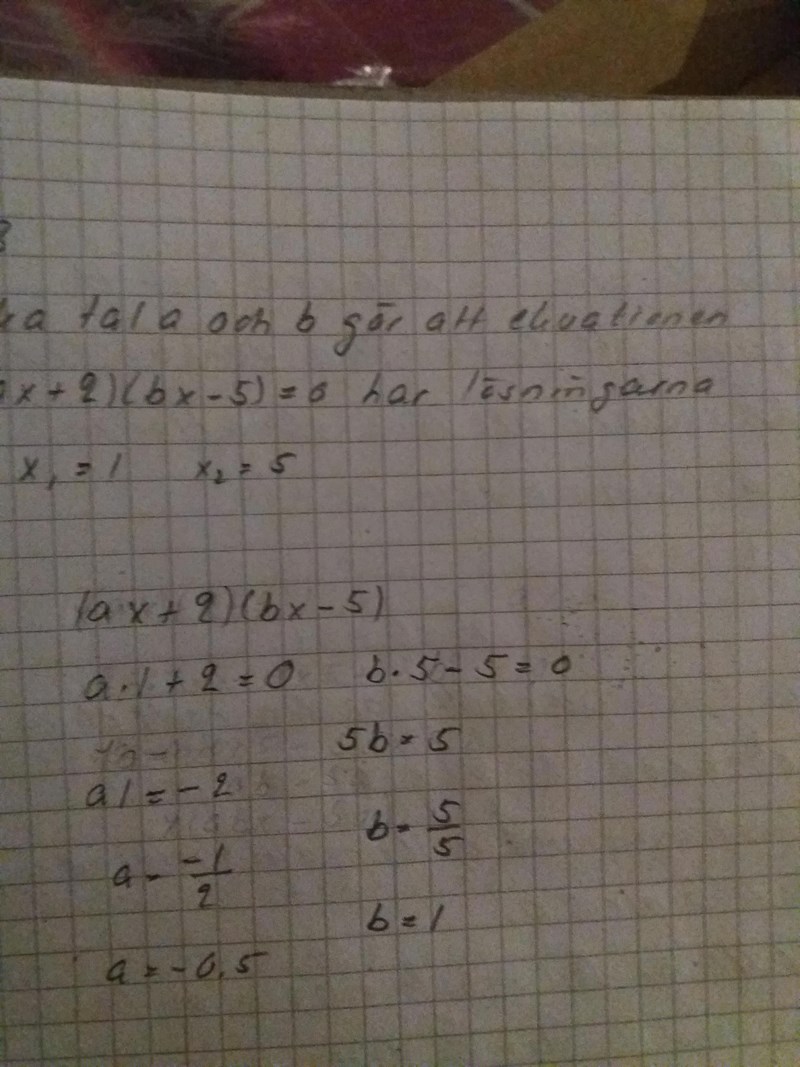 tal a och b gör att ekvationen
x + 2)(bx - 5) = 0 har lösningarna
x₁ = 1 x₂ = 5
(ax + 2)(bx - 5)
a · 1 + 2 = 0 b · 5 - 5 = 0
5b = 5
a1 = -2
b = 5/5
a = -1/2
b = 1
a = -0,5